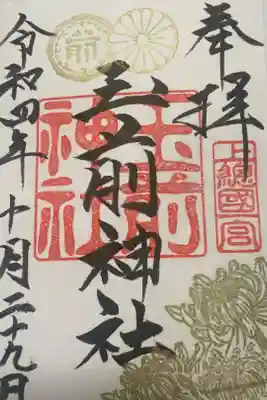 奉拝
上總國一宮
玉前神社
玉前神社
前
令和四年十月二十九日